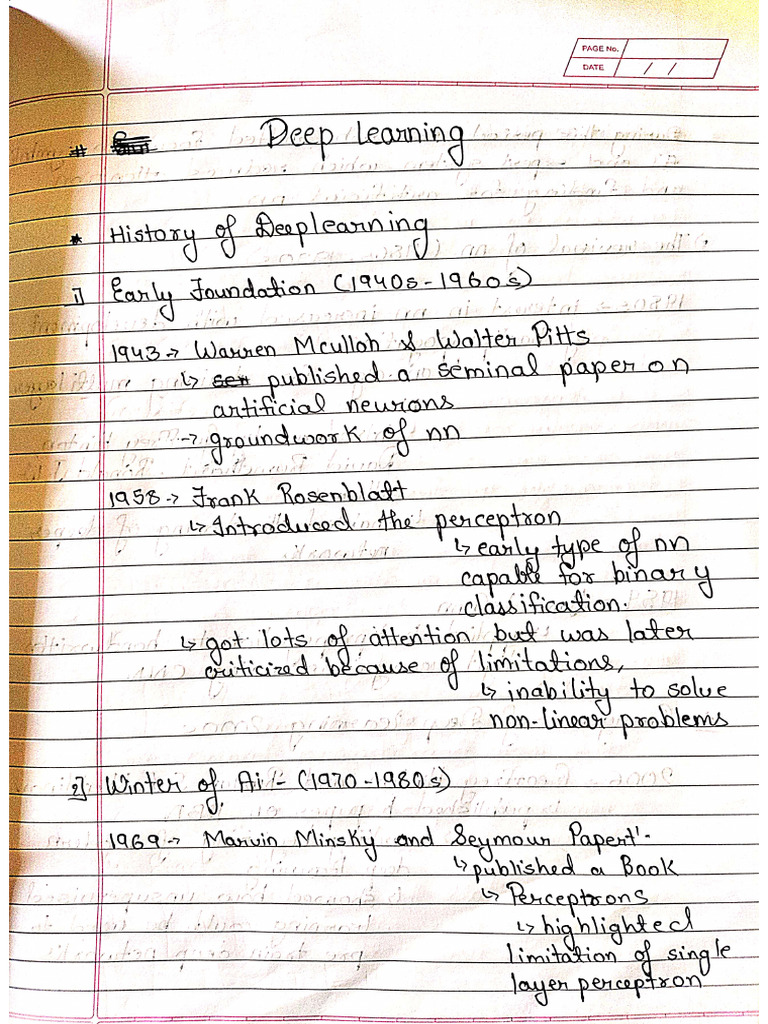 PAGE No.
DATE / /
# Deep Learning
* History of Deeplearning
1] Early Foundation (1940s-1960s)
1943 → Warren Mculloh & Walter Pitts
↳ published a seminal paper on
artificial neurions
→ groundwork of nn
1958 → Frank Rosenblatt
↳ Introduced the perceptron
↳ early type of nn
capable for binary
classification.
↳ got lots of attention but was later
criticized because of limitations,
↳ inability to solve
non-linear problems
2] Winter of Ai :- (1970-1980s)
1969 → Marvin Minsky and Seymour Papert'-
↳ published a Book
↳ Perceptrons
↳ highlighted
limitation of single
layer perceptron